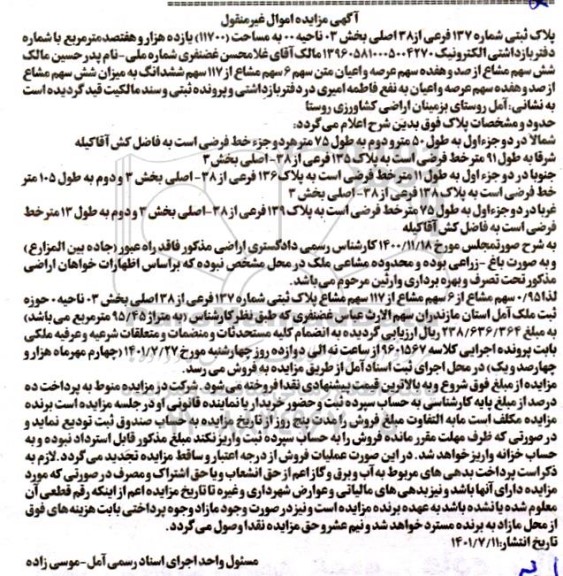 آگهی مزایده اموال غیرمنقول
پلاک ثبتی شماره ۱۳۷ فرعی از ۳۸ اصلی بخش ۰۳ ناحیه ۰۰ به مساحت (۱۱۷۰۰) یازده هزار و هفتصد مترمربع با شماره
دفتر بازداشتی الکترونیک ۱۳۹۶۰۵۸۱۰۰۰۵۰۰۴۲۷۰ مالک آقای غلامحسن غضنفری شماره ملی-نام پدر حسین مالک
شش سهم مشاع از صد و هفده سهم عرصه و اعیان متن سهم ۶ سهم مشاع از ۱۱۷ سهم ششدانگ به میزان شش سهم مشاع
از صد و هفده سهم عرصه و اعیان به نفع فاطمه امیری در دفتر بازداشتی و پرونده ثبتی و سند مالکیت قید گردیده است
به نشانی: آمل روستای بزمینان اراضی کشاورزی روستا
حدود و مشخصات پلاک فوق بدین شرح اعلام می گردد:
شمالا در دو جزء اول به طول ۵۰ متر و دوم به طول ۷۵ متر هردو جزء خط فرضی است به فاضل کش آقاکیله
شرقا به طول ۹۱ متر خط فرضی است به پلاک ۱۳۵ فرعی از ۳۸- اصلی بخش ۳
جنوبا در دو جزء اول به طول ۱۱ متر خط فرضی است به پلاک ۱۳۶ فرعی از ۳۸- اصلی بخش ۳ و دوم به طول ۱۰۵ متر
خط فرضی است به پلاک ۱۳۸ فرعی از ۳۸- اصلی بخش ۳
غربا در دو جزء اول به طول ۷۵ متر خط فرضی است به پلاک ۱۳۹ فرعی از ۳۸- اصلی بخش ۳ و دوم به طول ۱۳ متر خط
فرضی است به فاضل کش آقاکیله
به شرح صورتمجلس مورخ ۱۴۰۰/۱۱/۱۸ کارشناس رسمی دادگستری اراضی مذکور فاقد راه عبور (جاده بین المزارع)
و به صورت باغ -زراعی بوده و محدوده مشاعی ملک در محل مشخص نبوده که براساس اظهارات خواهان اراضی
مذکور تحت تصرف و بهره برداری وارثین مرحوم می باشد.
لذا ۰/۹۵ سهم مشاع از ۶ سهم مشاع از ۱۱۷ سهم مشاع پلاک ثبتی شماره ۱۳۷ فرعی از ۳۸ اصلی بخش ۰۳ ناحیه ۰ حوزه
ثبت ملک آمل استان مازندران سهم الارث عباس غضنفری که طبق نظر کارشناس (به متراژ ۹۵/۴۵ مترمربع می باشد)
به مبلغ ۲۳۸/۶۳۶/۳۶۴ ریال ارزیابی گردیده به انضمام کلیه مستحدثات و منضمات و متعلقات شرعیه و عرفیه ملکی
بابت پرونده اجرایی کلاسه ۹۶۰۱۵۶۷ از ساعت نه الی دوازده روز چهارشنبه مورخ ۱۴۰۱/۷/۲۷ (چهارم مهرماه هزار و
چهارصد و یک) در محل اجرای ثبت اسناد آمل از طریق مزایده به فروش می رسد.
مزایده از مبلغ فوق شروع و به بالاترین قیمت پیشنهادی نقدا فروخته می شود. شرکت در مزایده منوط به پرداخت ده
درصد از مبلغ پایه کارشناسی به حساب سپرده ثبت و حضور خریدار یا نماینده قانونی او در جلسه مزایده است برنده
مزایده مکلف است مابه التفاوت مبلغ فروش را مدت پنج روز از تاریخ مزایده به حساب صندوق ثبت تودیع نماید و
در صورتی که ظرف مهلت مقرر مانده فروش را به حساب سپرده ثبت واریز نکند مبلغ مذکور قابل استرداد نبوده و به
حساب خزانه واریز خواهد شد. در این صورت عملیات فروش از درجه اعتبار و ساقط مزایده تجدید می گردد. لازم به
ذکر است پرداخت بدهی های مربوط به آب و برق و گاز اعم از حق انشعاب و یا حق اشتراک و مصرف در صورتی که مورد
مزایده دارای آنها باشد و نیز بدهی های مالیاتی و عوارض شهرداری و غیره تا تاریخ مزایده اعم از اینکه رقم قطعی آن
معلوم شده یا نشده باشد به عهده برنده مزایده است و نیز در صورت وجود مازاد وجوه پرداختی بابت هزینه های فوق
از محل مازاد به برنده مسترد خواهد شد و نیم عشر و حق مزایده نقدا وصول می گردد.
تاریخ انتشار: ۱۴۰۱/۷/۱۱
مسئول واحد اجرای اسناد رسمی آمل- موسی زاده